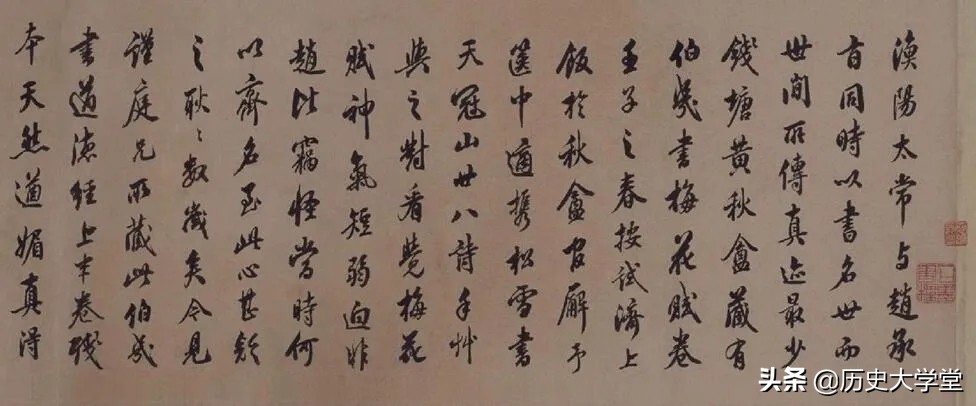 漁陽太常与趙承
旨同時以書名世而
世間所傳真迹最少
錢塘黃秋盦藏有
伯幾書梅花賦卷
壬子之春按試濟上
飯於秋盦官廨予
篋中適攜松雪書
天冠山廿八詩手艸
與之對看覺梅花
賦神氣短弱迥非
趙比竊怪當時何
以齊名至此心甚疑
之耿〻數歲矣今見
謹庭兄所藏此伯幾
書道德經上半卷殘
本天然遒媚真得
头条 @历史大学堂